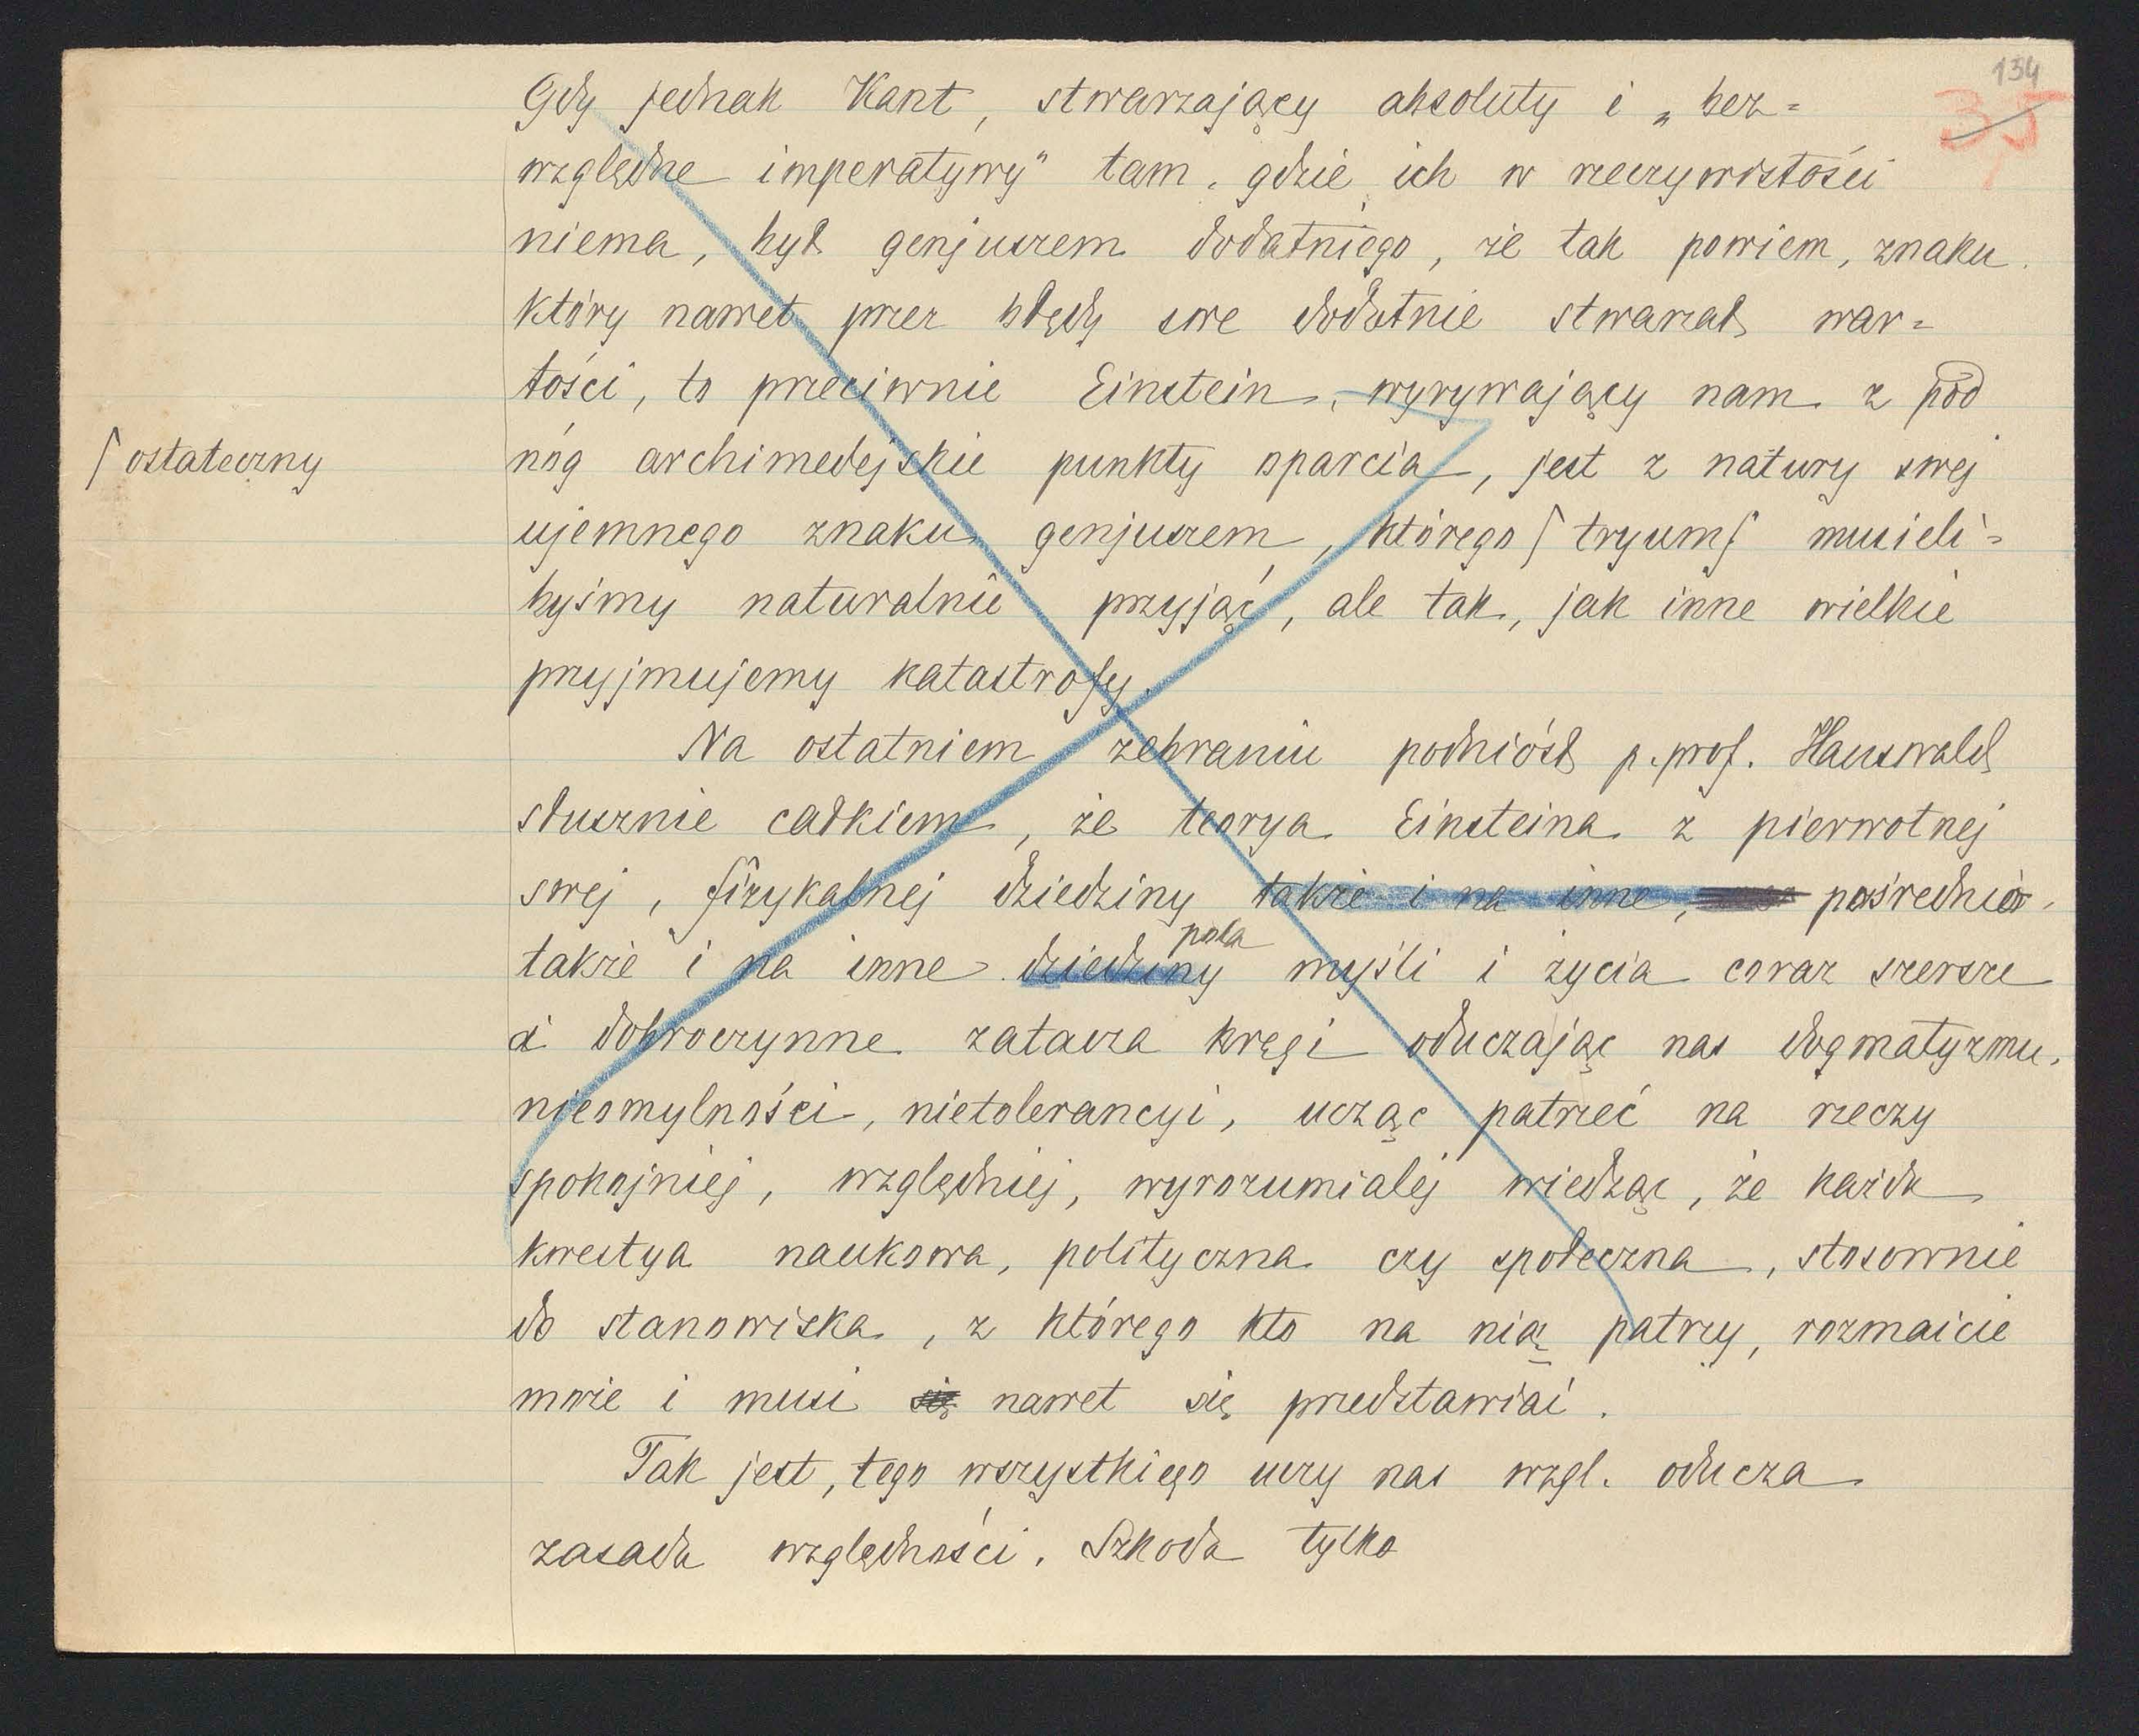 134
35
Gdy jednak Kant, stwarzający absoluty i „bez=
względne imperatywy" tam, gdzie ich w rzeczywistości
niema, był genjuszem dodatniego, że tak powiem, znaku,
który nawet przez błędy swe dodatnie stwarzał war=
tości, to przeciwnie Einstein, wyrywający nam z pod
nóg archimedejskie punkty oparcia, jest z natury swej
⌈ ostateczny
ujemnego znaku genjuszem, którego ⌈ tryumf musieli=
byśmy naturalnie przyjąć, ale tak, jak inne wielkie
przyjmujemy katastrofy.
Na ostatniem zebraniu podniósł p. prof. Hauswald
słusznie całkiem, że teorya Einsteina z pierwotnej
swej, fizykalnej dziedziny także i na inne, pośrednio,
pola
także i na inne dziedziny myśli i życia coraz szersze
i dobroczynne zatacza kręgi oduczając nas dogmatyzmu,
nieomylności, nietolerancyi, ucząc patrzeć na rzeczy
spokojniej, względniej, wyrozumialej wiedząc, że każda
kwestya naukowa, polityczna czy społeczna, stosownie
do stanowiska, z którego kto na nią patrzy, rozmaicie
może i musi się nawet się przedstawiać.
Tak jest, tego wszystkiego uczy nas wzgl. oducza
zasada względności. Szkoda tylko